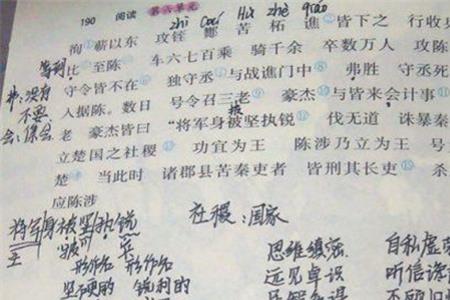 190 阅读 第六单元
zhì cuó zhè qiáo
徇①蕲以东 攻铚 酂 苦 柘 谯②皆下之 行收兵
等到
比③至陈 车六七百乘 骑千余 卒数万人 攻陈
弗:没有
守令皆不在 独守丞⑦与战谯门中⑧ 弗胜 守丞死
不要
入据陈 数日 号令召三老⑨ 豪杰⑩与皆来会计事
会:集会
老 豪杰皆曰 “将军身被坚执锐 伐无道 诛暴秦
披
立楚国之社稷 功宜为王 陈涉乃立为王 号
楚 当此时 诸郡县苦秦吏者 皆刑其长吏 杀
应陈涉
将军身被坚执锐 社稷:国家
主 披
形作名 形作名 思维缜密 自私虚荣
坚硬的 锐利的 远见卓识 听信谗言